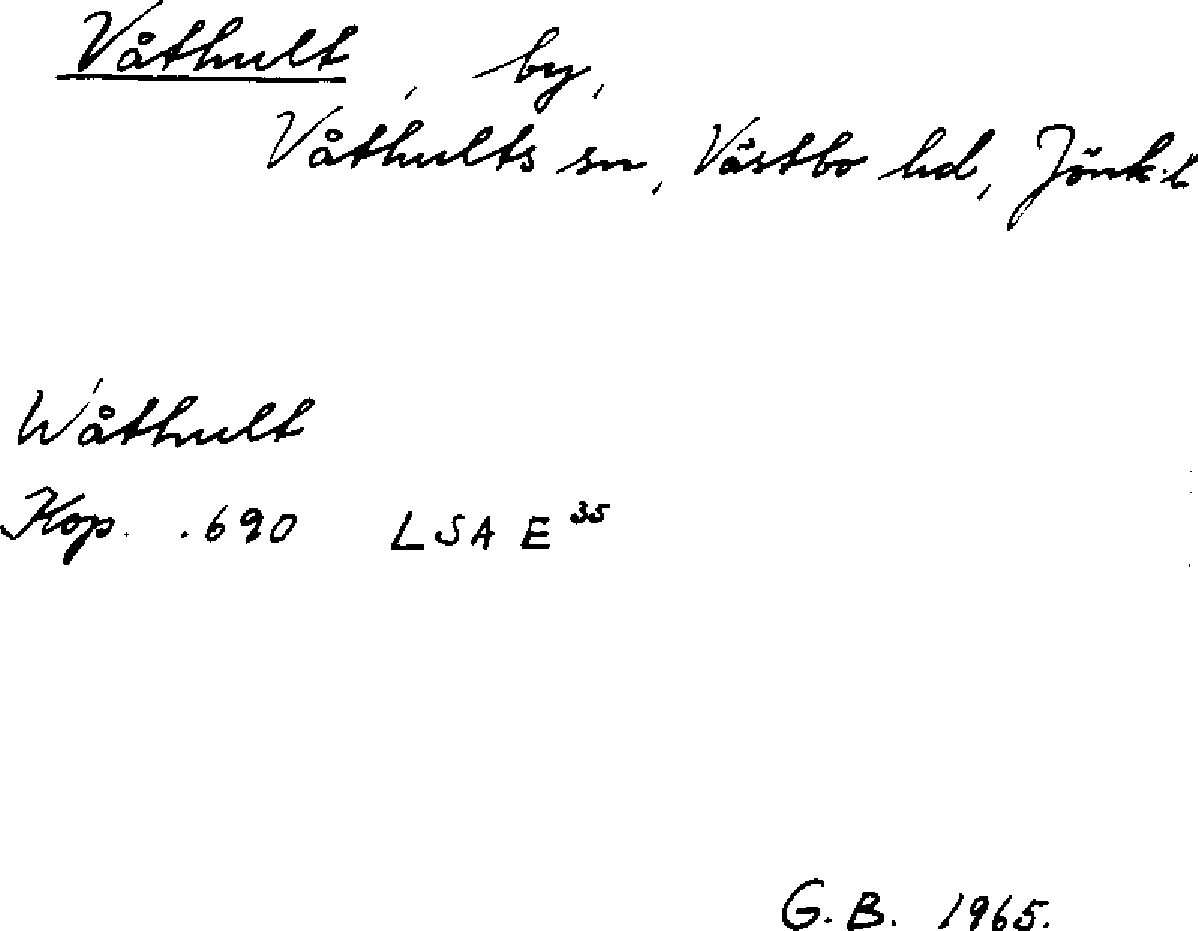 Våthult, by,
Våthults sn, Västbo hd, Jönk:l
Wåthult
Kop. .690 LSA E 35
G.B. 1965.